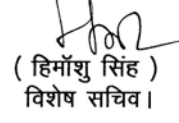 ( हिमॉशु सिंह )
विशेष सचिव।